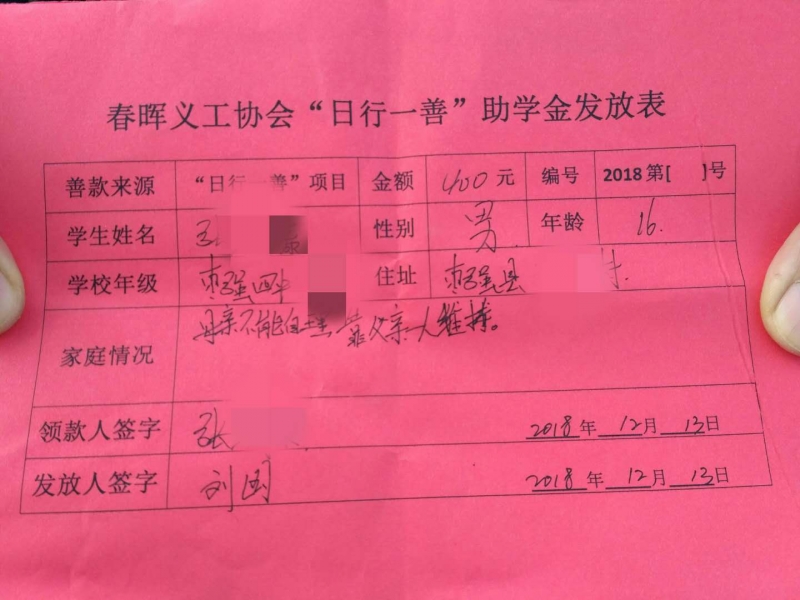 春晖义工协会“日行一善”助学金发放表
善款来源 “日行一善”项目 金额 400元 编号 2018第[ ]号
学生姓名 性别 男 年龄 16.
学校年级 枣强四中 住址 枣强县
家庭情况 母亲不能自理 靠父亲一人维持。
领款人签字 张 2018年 12月 13日
发放人签字 刘国 2018年 12月 13日